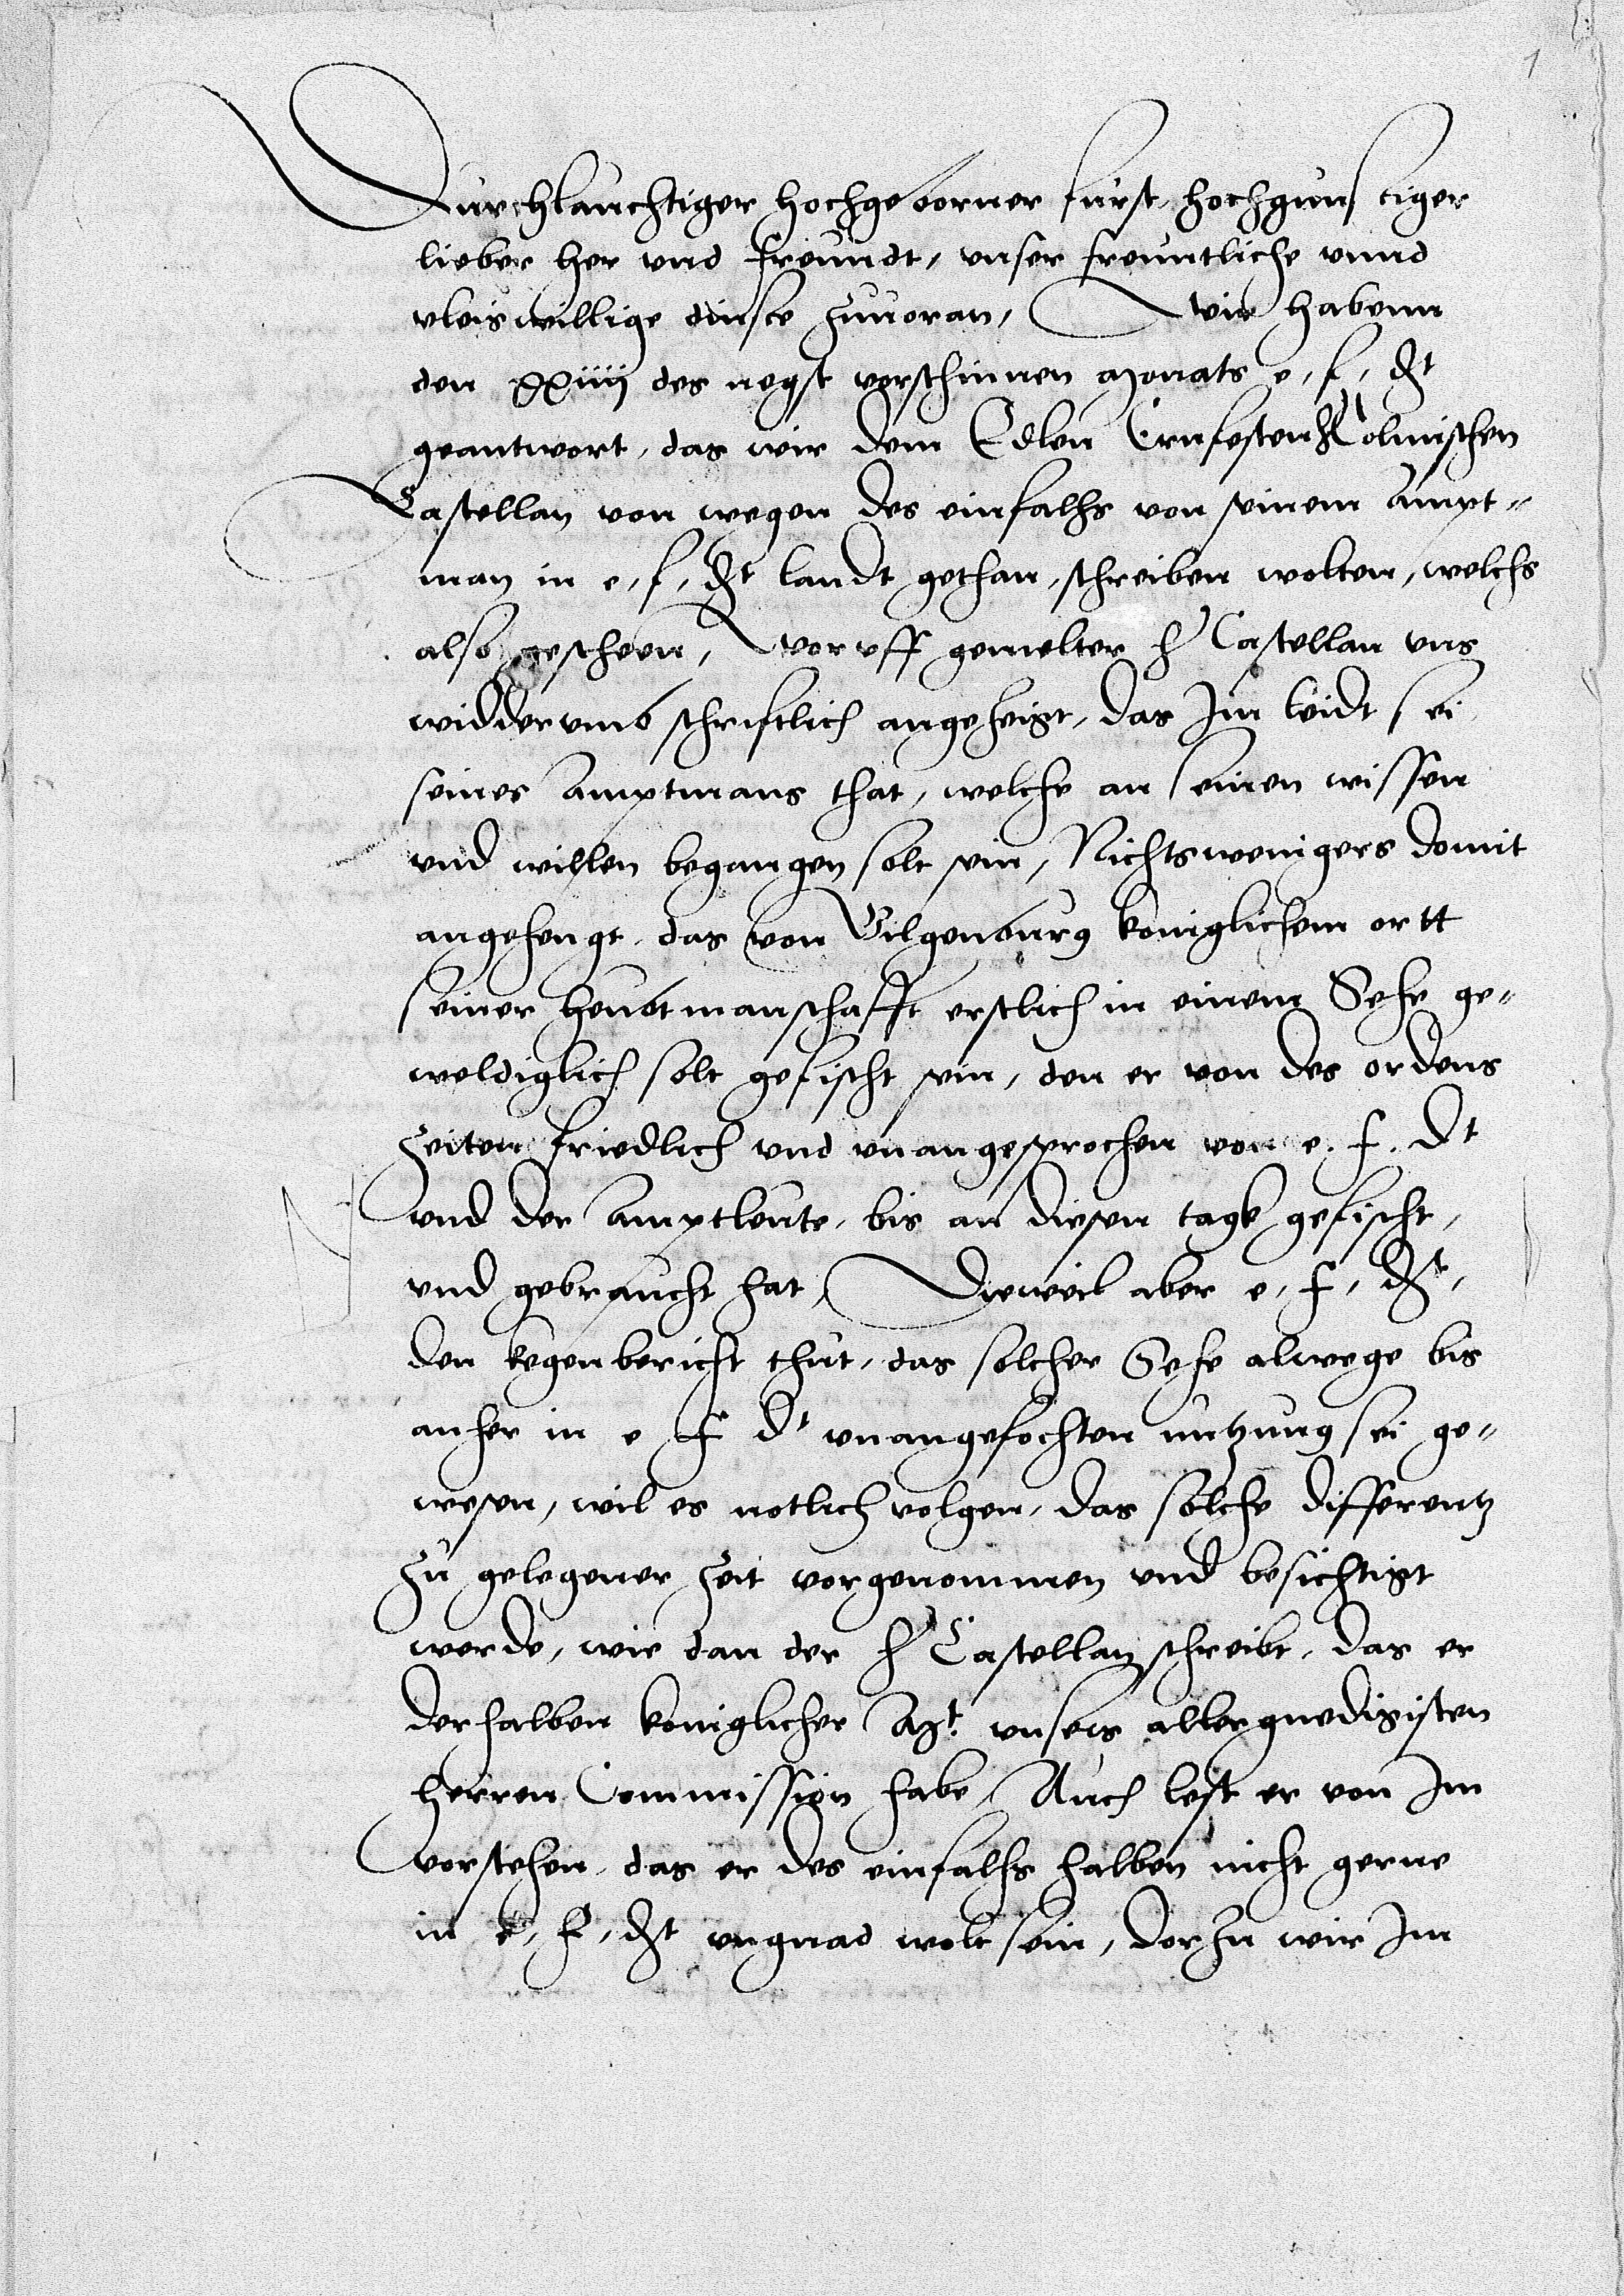 1
Durchlauchtiger hochgeborner furst, hochgunstiger
lieber her vnd freundt, vnser freuntliche vnnd
vleiswillige dinste zuuoran, Wir habenn
den xxiiij des negst vorschinnen monats e, f, dht
geantwort, das wir dem Edlen Ernfesten h Colmischen
Castellan von wegen des einfalhs von seinem ampt-
man in e, f, dht landt gethan, schreiben wolten, welchs
also gescheen, Woruff gemelter h Castellan vns
widderumb schriftlich angezeigt, das Im leidt sei
seines amptmans that, welche an seinen wissen
vnd willen begangen solt sein, Nichtsweniger domit
angehengt, das von Gilgenburg koniglichem ortt
seiner heubtmanschafft erstlich in einem Sehe ge-
weldiglich solt gefischt sein, den er von des ordens
Zeiten friedlich vnd vnangesprochen von e. f. dt
vnd der amptleute, bis an diesen tagk gefischt,
vnd gebraucht hat, Dieweil aber e, f, dht,
den kegenbericht thut, das solcher Sehe alwege bis
anher in e f dt vnangefochten nutzung sei ge-
wesen, wil es notlich volgen, das solche differentz
Zu gelegener Zeit vorgenommen vnd besichtigt
werde, wie dan der h Castellan schreibt, das er
derhalben koniglicher Mt. vnsers allergnedigisten
herren Commission habe, Auch lest er von Im
vorstehen, das er des einfalhs halben nicht gerne
in e, f, dht vngnad wolt sein, dorzu wir Im